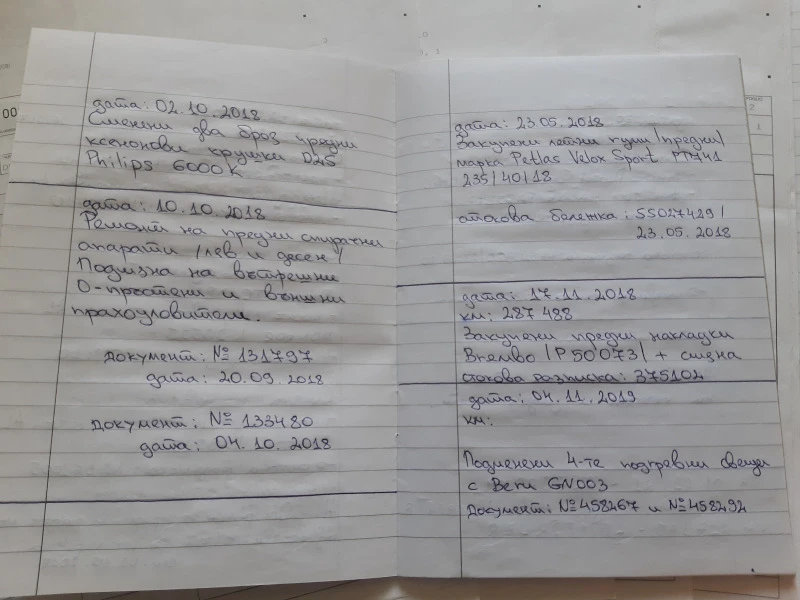 дата: 02.10.2018
Сменени два броя предни
ксенонови крушки D2S
Philips 6000K
дата: 10.10.2018
Ремонт на предни спирачни
апарати /ляв и десен/
Подмяна на вътрешни
О-пръстени и външни
прахоуловители.
документ: № 131797
дата: 20.09.2018
документ: № 133480
дата: 04.10.2018
дата: 23.05.2018
Закупени летни гуми /предни/
марка Petlas Velox Sport PT741
235/40/18
стокова бележка: 55027429/
23.05.2018
дата: 17.11.2018
км: 287488
Закупени предни накладки
Brembo /P50073/ + смяна
стокова разписка: 375102
дата: 04.11.2019
км:
Подменени 4-те подгревни свещи
с Beru GN003
Документ: №458267 и №458292
00
2
1